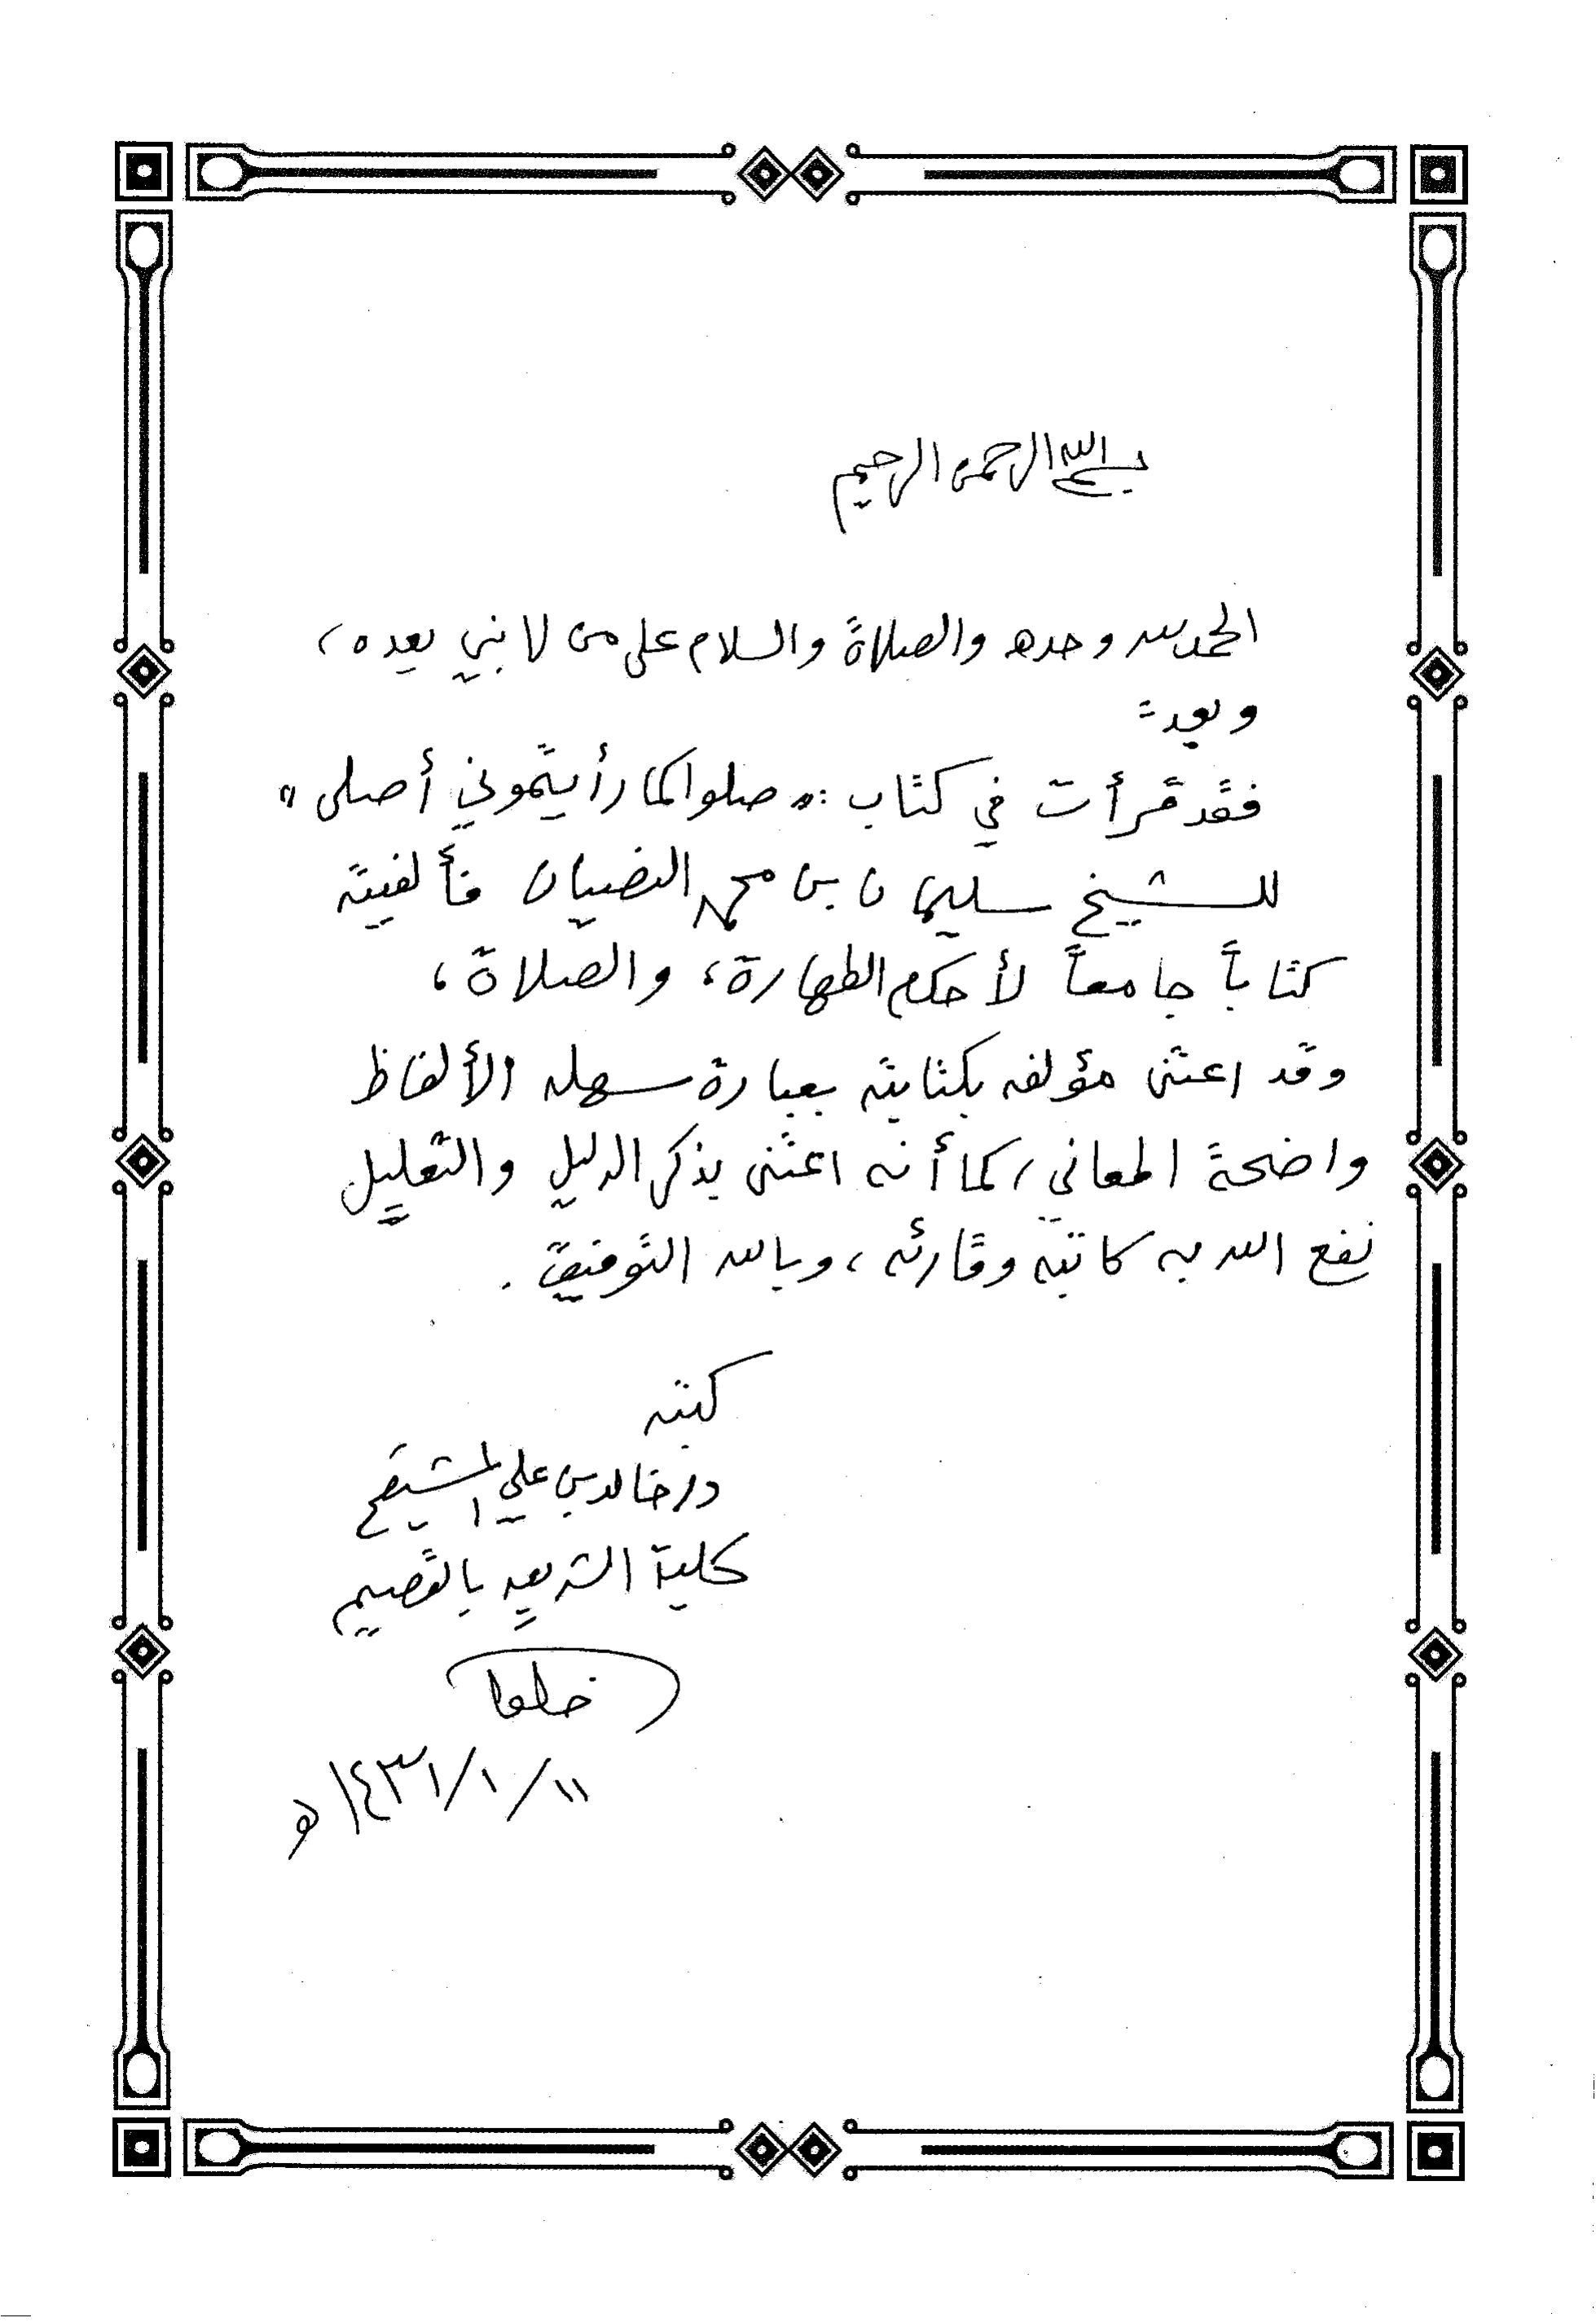 بسم الله الرحمن الرحيم
الحمد لله وحده والصلاة والسلام على من لا نبي بعده،
وبعد:
فقد قرأت في كتاب: «صلوا كما رأيتموني أصلي»
للشيخ سليمان بن محمد النصيان فألفيته
كتاباً جامعاً لأحكام الطهارة، والصلاة،
وقد اعتنى مؤلفه بكتابته بعبارة سهله الألفاظ
واضحة المعاني، كما أنه اعتنى بذكر الدليل والتعليل
نفع الله به كاتبه وقارئه، وبالله التوفيق.
كتبه
د/ خالد بن علي المشيقح
كلية الشريعه بالقصيم
١١/ ١/ ١٤٣١ه